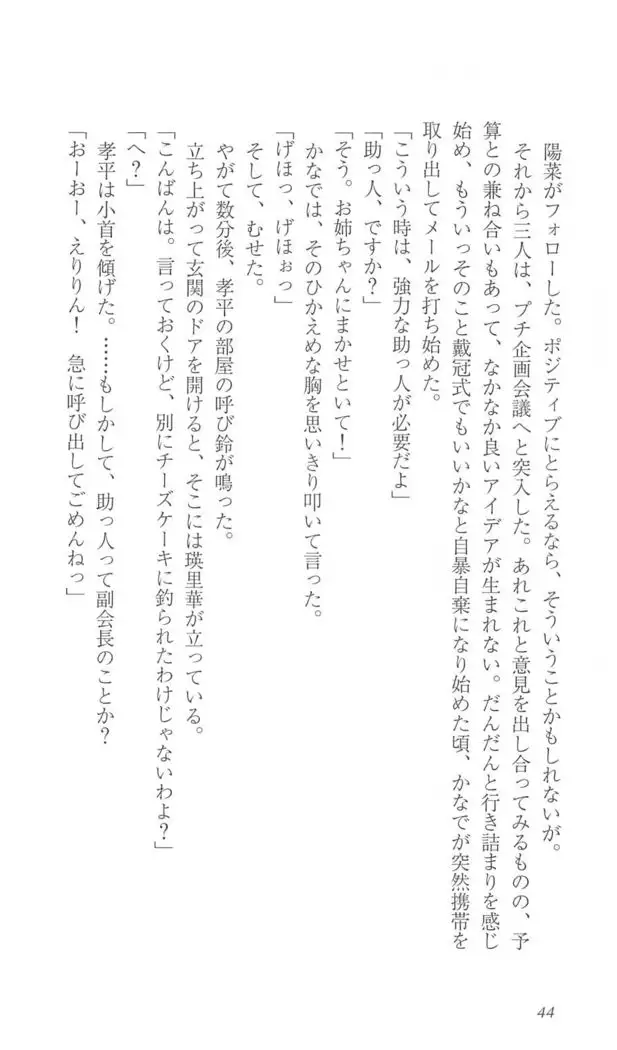 陽菜がフォローした。ポジティブにとらえるなら、そういうことかもしれないが。
それから三人は、プチ企画会議へと突入した。あれこれと意見を出し合ってみるものの、予
算との兼ね合いもあって、なかなか良いアイデアが生まれない。だんだんと行き詰まりを感じ
始め、もういっそのこと戴冠式でもいいかなと自暴自棄になり始めた頃、かなでが突然携帯を
取り出してメールを打ち始めた。
「こういう時は、強力な助っ人が必要だよ」
「助っ人、ですか?」
「そう。お姉ちゃんにまかせといて!」
かなでは、そのひかえめな胸を思いきり叩いて言った。
「げほっ、げほぉっ」
そして、むせた。
やがて数分後、孝平の部屋の呼び鈴が鳴った。
立ち上がって玄関のドアを開けると、そこには瑛里華が立っている。
「こんばんは。言っておくけど、別にチーズケーキに釣られたわけじゃないわよ?」
「へ?」
孝平は小首を傾げた。……もしかして、助っ人って副会長のことか?
「おーおー、えりりん! 急に呼び出してごめんねっ」
44